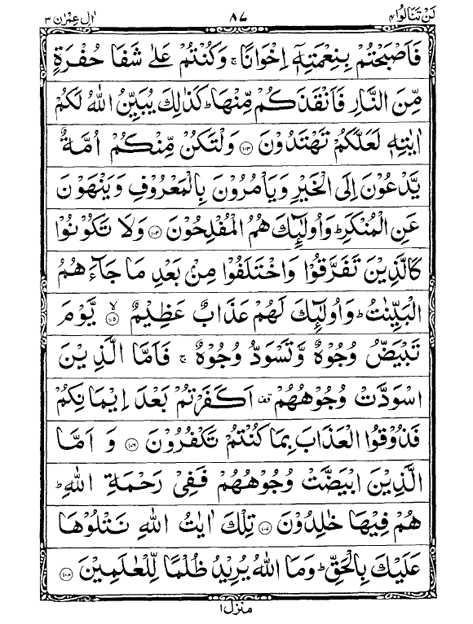 لَنْ تَنَالُوا۴ ٨٧ اٰلِ عِمْرٰن ٣
فَاَصْبَحْتُمْ بِنِعْمَتِهٖٓ اِخْوَانًا ۚ وَكُنْتُمْ عَلٰى شَفَا حُفْرَةٍ
مِّنَ النَّارِ فَاَنْقَذَكُمْ مِّنْهَا ؕ كَذٰلِكَ يُبَيِّنُ اللّٰهُ لَكُمْ
اٰيٰتِهٖ لَعَلَّكُمْ تَهْتَدُوْنَ ۝۱۰۳ وَلْتَكُنْ مِّنْكُمْ اُمَّةٌ
يَّدْعُوْنَ اِلَى الْخَيْرِ وَيَاْمُرُوْنَ بِالْمَعْرُوْفِ وَيَنْهَوْنَ
عَنِ الْمُنْكَرِ ؕ وَاُولٰٓئِكَ هُمُ الْمُفْلِحُوْنَ ۝۱۰۴ وَلَا تَكُوْنُوْا
كَالَّذِيْنَ تَفَرَّقُوْا وَاخْتَلَفُوْا مِنْۢ بَعْدِ مَا جَآءَهُمُ
الْبَيِّنٰتُ ؕ وَاُولٰٓئِكَ لَهُمْ عَذَابٌ عَظِيْمٌ ۝۱۰۵ ۙ يَّوْمَ
تَبْيَضُّ وُجُوْهٌ وَّتَسْوَدُّ وُجُوْهٌ ۚ فَاَمَّا الَّذِيْنَ
اسْوَدَّتْ وُجُوْهُهُمْ قف اَكَفَرْتُمْ بَعْدَ اِيْمَانِكُمْ
فَذُوْقُوا الْعَذَابَ بِمَا كُنْتُمْ تَكْفُرُوْنَ ۝۱۰۶ وَ اَمَّا
الَّذِيْنَ ابْيَضَّتْ وُجُوْهُهُمْ فَفِيْ رَحْمَةِ اللّٰهِ ؕ
هُمْ فِيْهَا خٰلِدُوْنَ ۝۱۰۷ تِلْكَ اٰيٰتُ اللّٰهِ نَتْلُوْهَا
عَلَيْكَ بِالْحَقِّ ؕ وَمَا اللّٰهُ يُرِيْدُ ظُلْمًا لِّلْعٰلَمِيْنَ ۝۱۰۸
منزل۱